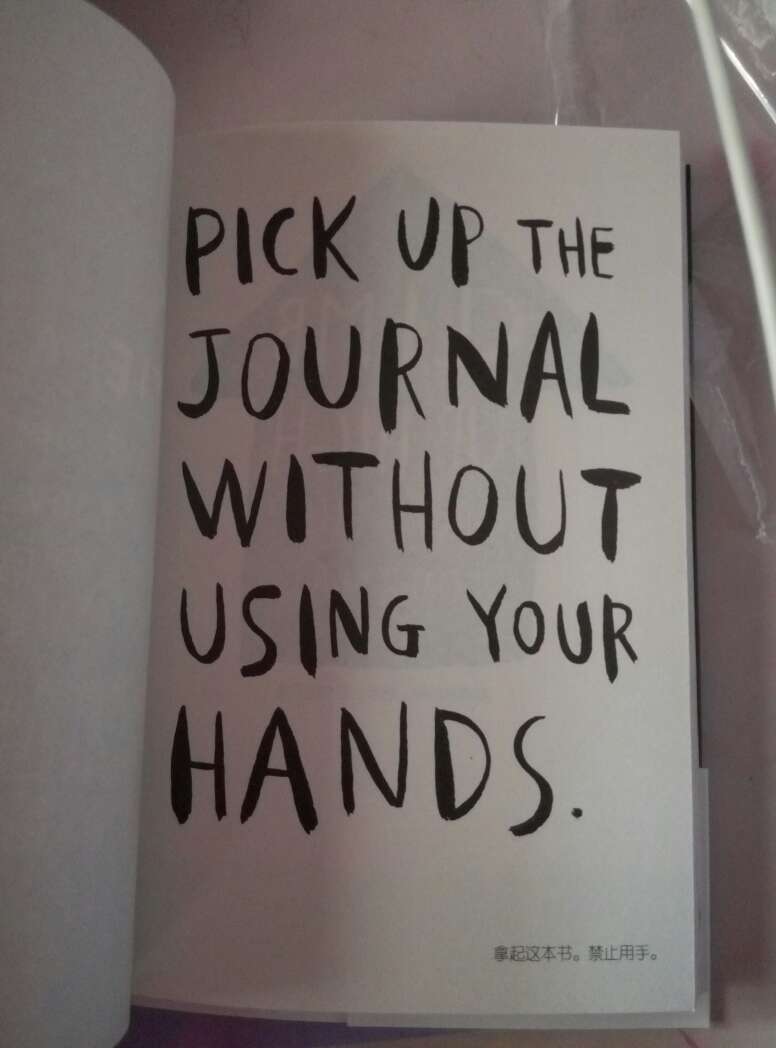 PICK UP THE
JOURNAL
WITHOUT
USING YOUR
HANDS.
拿起这本书。禁止用手。